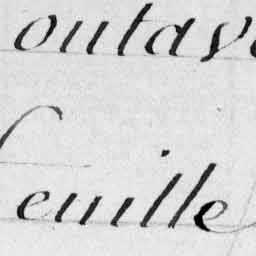 outav
feuille